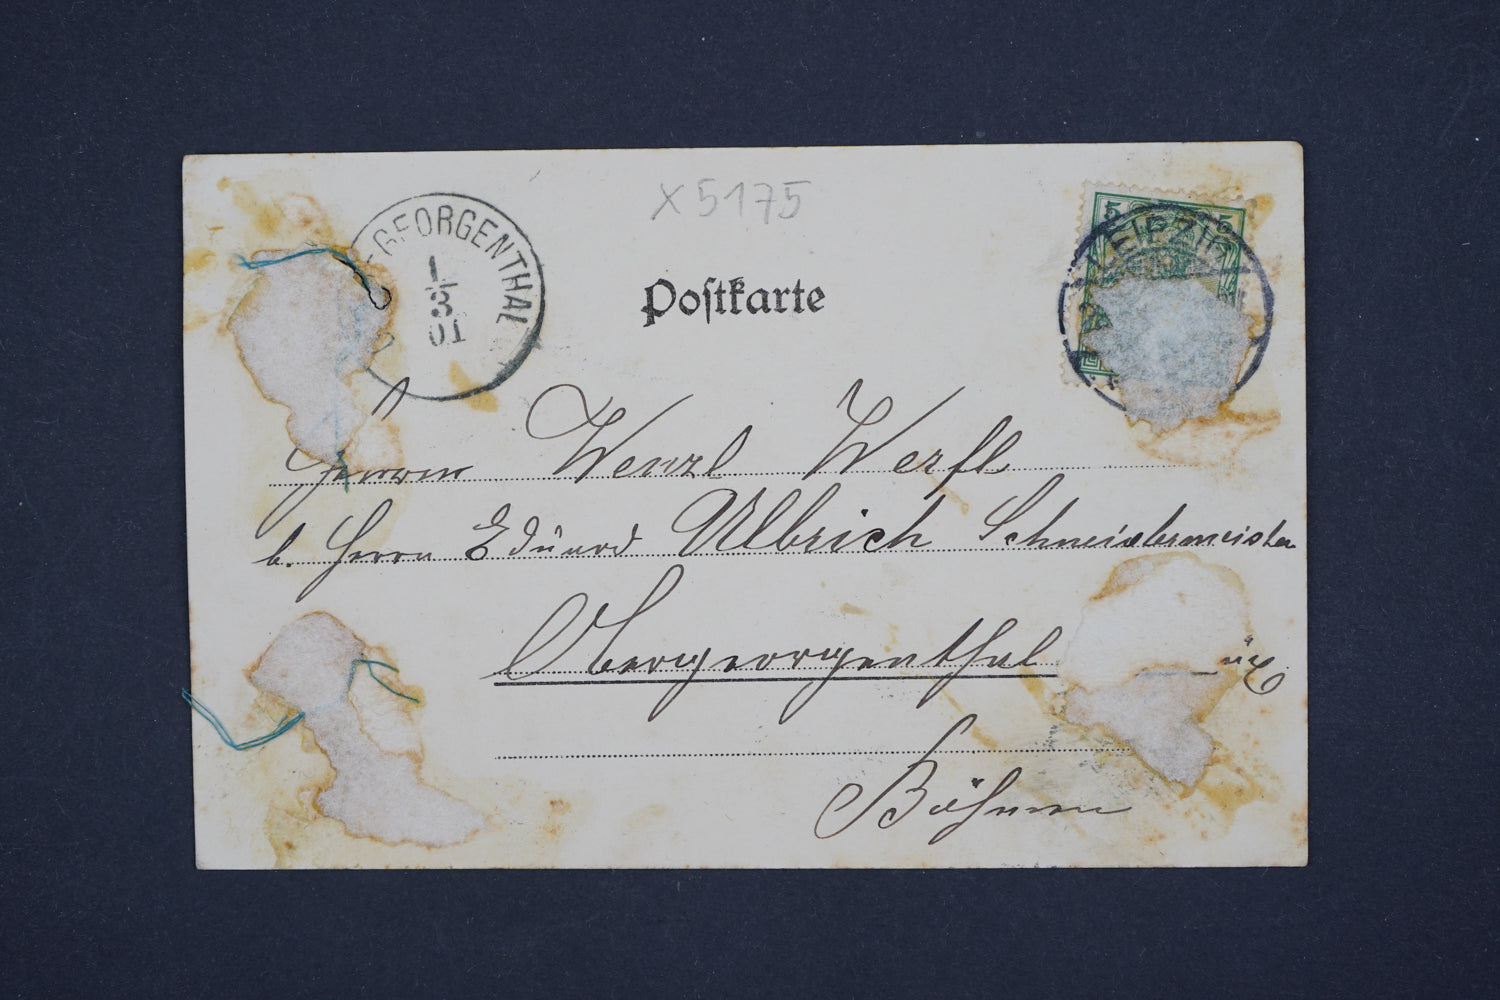 X 5175
ERGEORGENTHAL
1/3
01
5 5
LEIPZIG
Postkarte
Herrn Wenzl Werfl
b. Herrn Eduard Ulbrich Schneidermeister
Obergeorgenthal
Böhmen